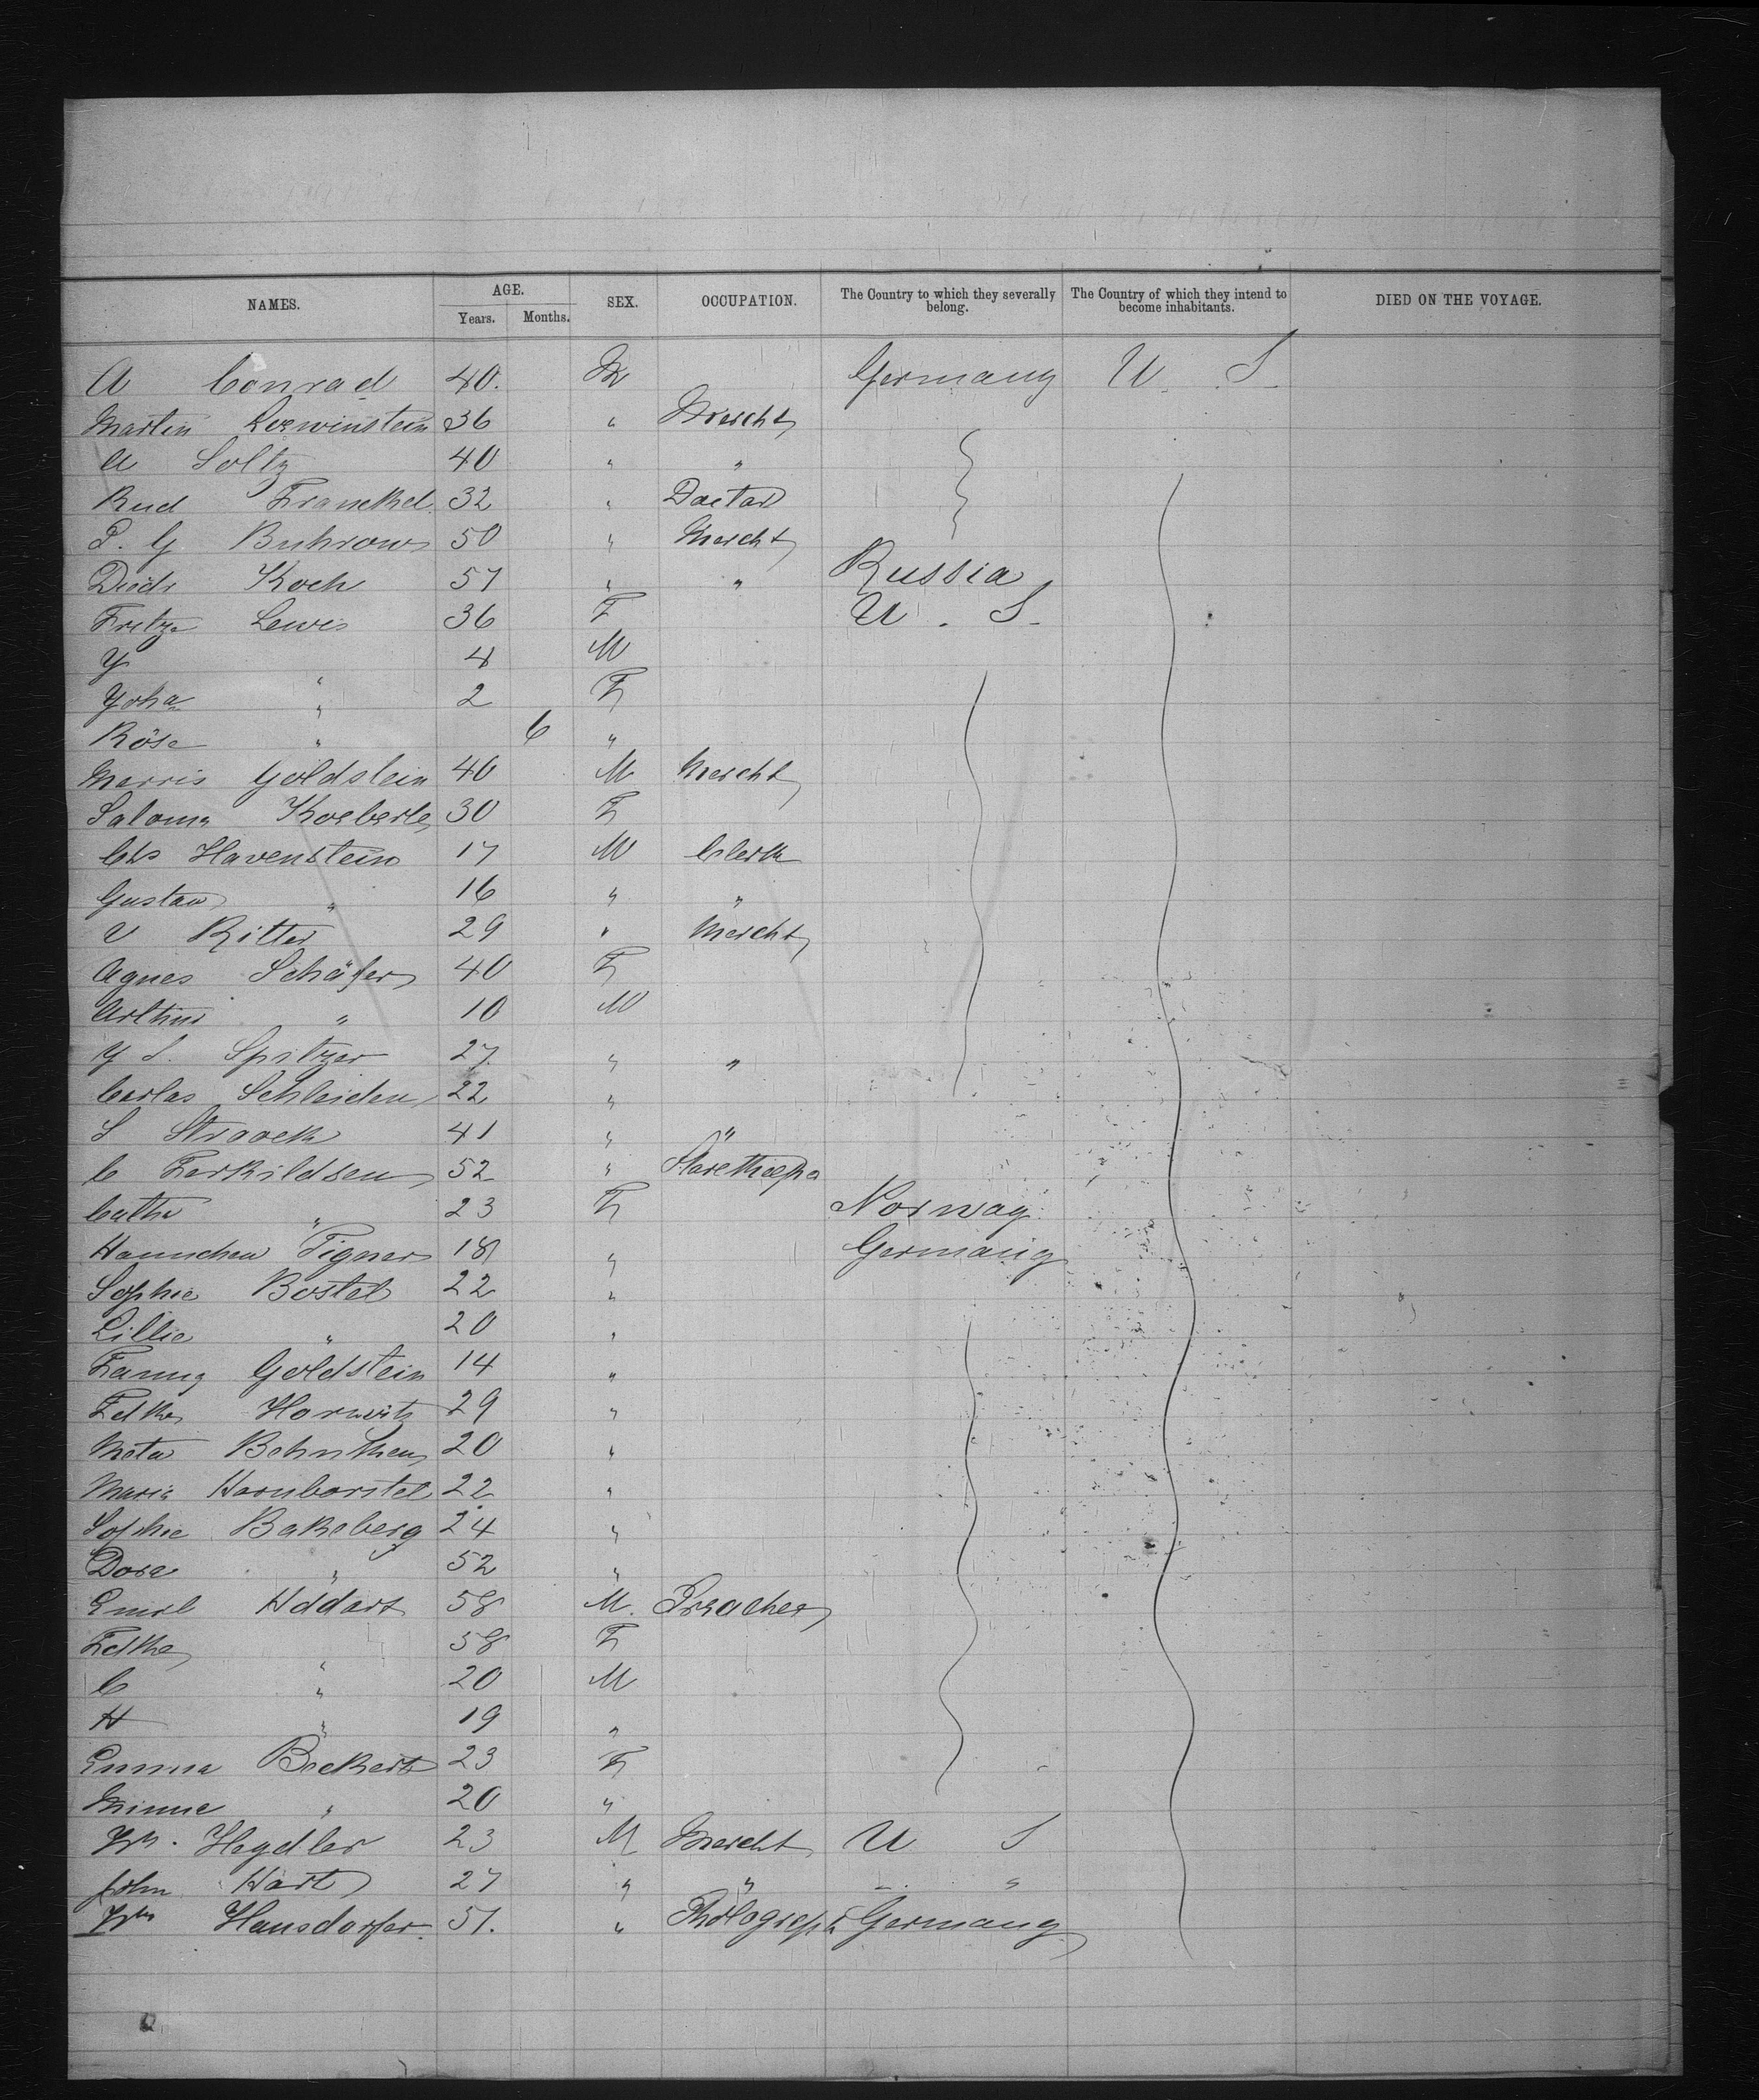 NAMES. AGE. SEX. OCCUPATION. The Country to which they severally belong. The Country of which they intend to become inhabitants. DIED ON THE VOYAGE.
Years. Months.
A Conrad 40. M Germany U. S.
Martin Loewinstein 36 " Mercht
A Soltz 40 " "
Rud Franckel 32 " Doctor
P. G Buhrow 50 " Mercht
Diedr Koch 57 " " Russia
Fritze Lewis 36 F U. S.
Y " 4 M
Yoha " 2 F
Röse " 6 "
Morris Goldstein 40 M Mercht
Saloma Koeberle 30 F
Chs Havenstein 17 M Clerk
Gustav " 16 " "
V Ritter 29 " Mercht
Agnes Schäfer 40 F
Arthur " 10 M
Y S. Spitzer 27 " "
Carlos Schleiden 22 "
S Straack 41 " "
C Terkildsen 52 "
Cathr " 23 F Norway
Hannchen Tigner 18 " Germany
Sophie Bostel 22 "
Lillie " 20 "
Fanny Goldstein 14 "
Horwitz 29 "
Meta Behnken 20 "
Maria Hornborstel 22 "
Sophie Bakeberg 24 "
Dora " 52 "
Emil Höddart 58 M. Preacher
" 58 F
C " 20 M
H " 19 "
Emma Beckert 23 F
Minne " 20 "
Wm. Heydler 23 M Mercht U S
John Hart 27 " " " "
Wm Hausdorfer. 51. " Photograph Germany